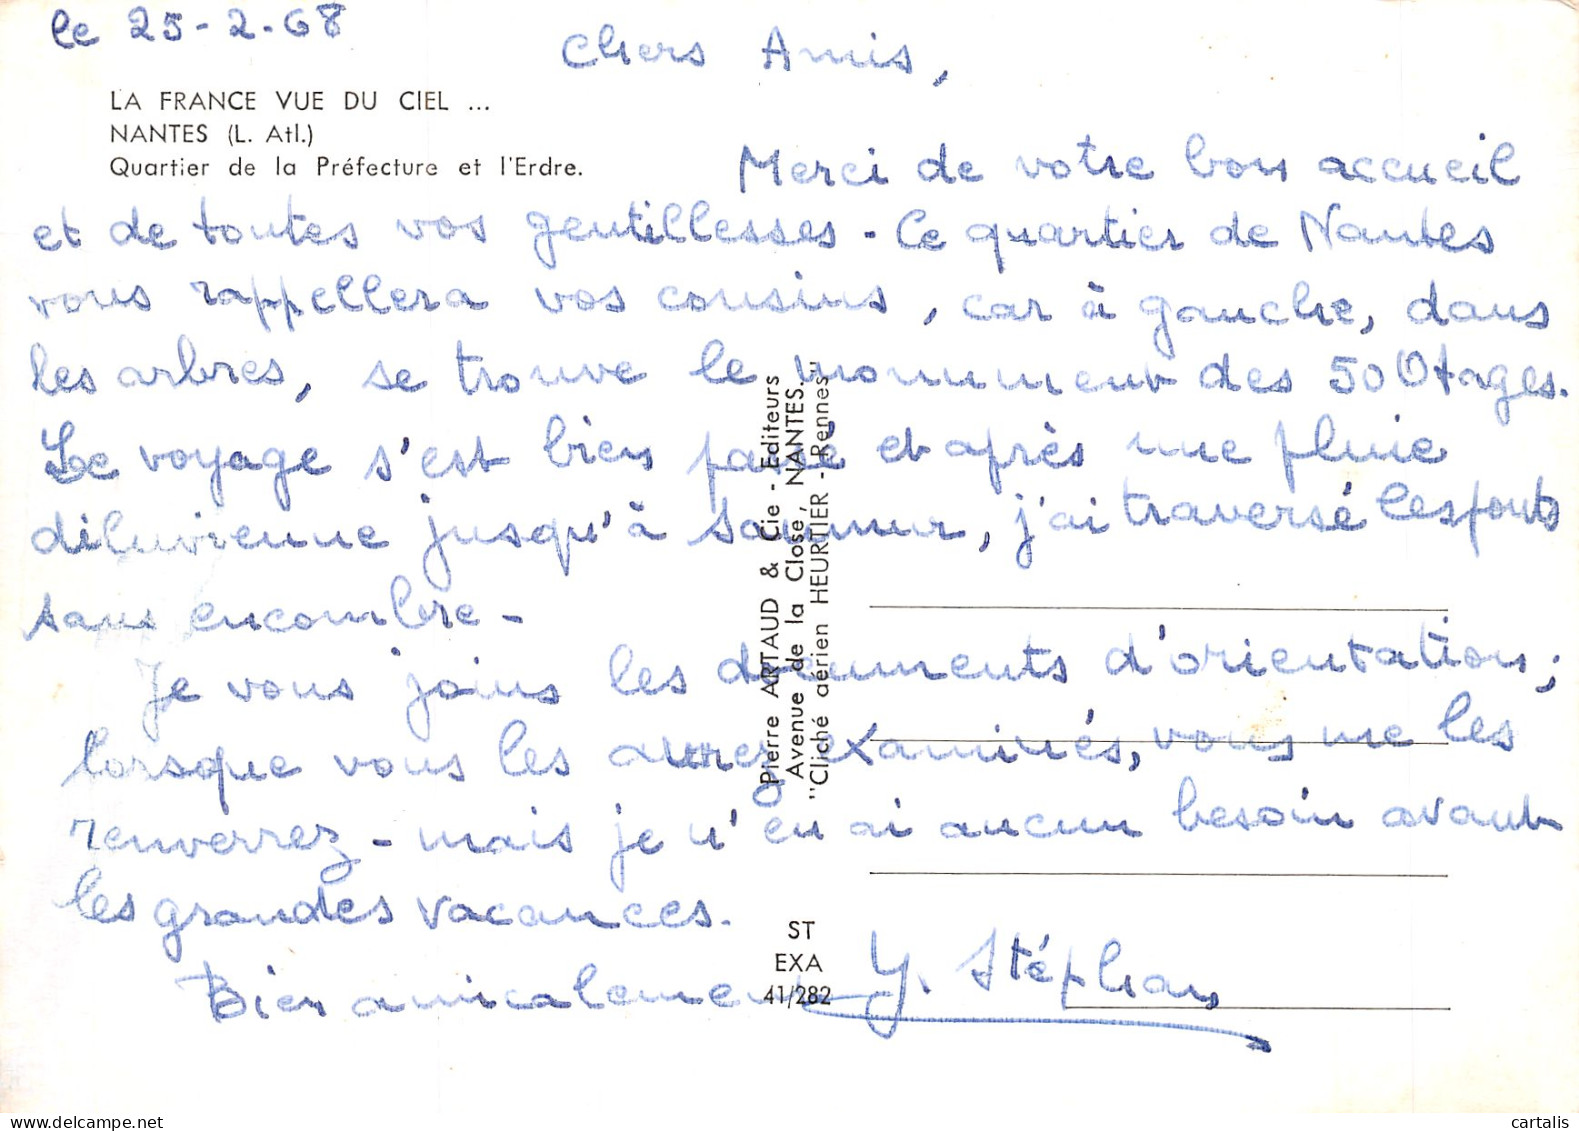 le 25-2-68
Chers Amis,
LA FRANCE VUE DU CIEL ...
NANTES (L. Atl.)
Quartier de la Préfecture et l'Erdre.
Merci de votre bon accueil
et de toutes vos gentillesses - Ce quartier de Nantes
vous rappellera vos cousins, car à gauche, dans
les arbres, se trouve le monument des 50 Otages.
Le voyage s'est bien passé et après une pluie
diluvienne jusqu'à Saumur, j'ai traversé les ponts
sans encombre -
Je vous joins les documents d'orientation;
lorsque vous les aurez examinés, vous me les
renverrez - mais je n'en ai aucun besoin avant
les grandes vacances.
Bien amicalement Y. Stéphan
Pierre ARTAUD & Cie - Editeurs
Avenue de la Close, NANTES.
"Cliché aérien HEURTIER - Rennes"
ST
EXA
41/282
cartalis.com